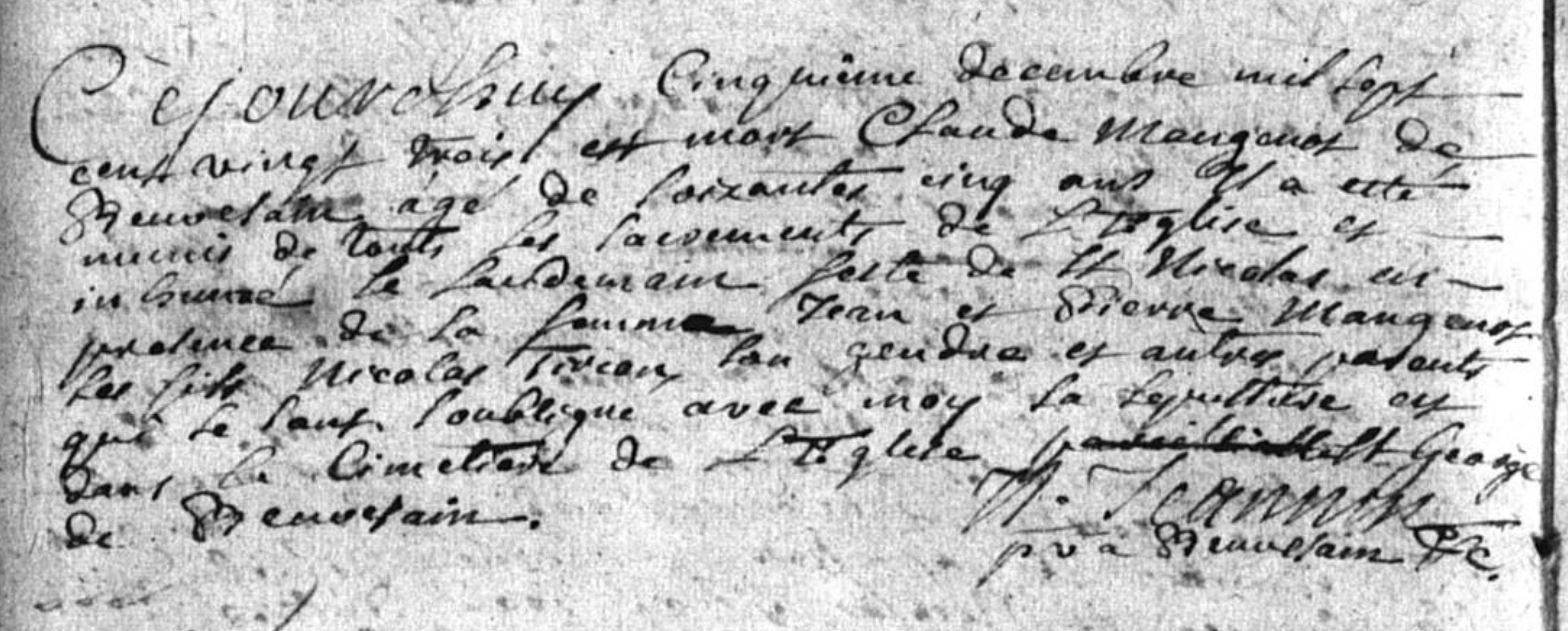 Cejourdhuy Cinquième decembre mil sept
cent vingt trois est mort Claude Mangenot de
Beuvesain agé de soixantes cinq ans Il a esté
munis de touts les sacrements de L'Eglise et
inhumé le landemain feste de St Nicolas en
presence de sa femme Jean et Pierre Mangenot
ses fils Nicolas son gendre et autres parents
qui se sont avec moy sa sepulture est
dans le Cimetiere de L'Eglise St George
de Beuvesain.
N. Jeannin
p à Beuvesain &c.